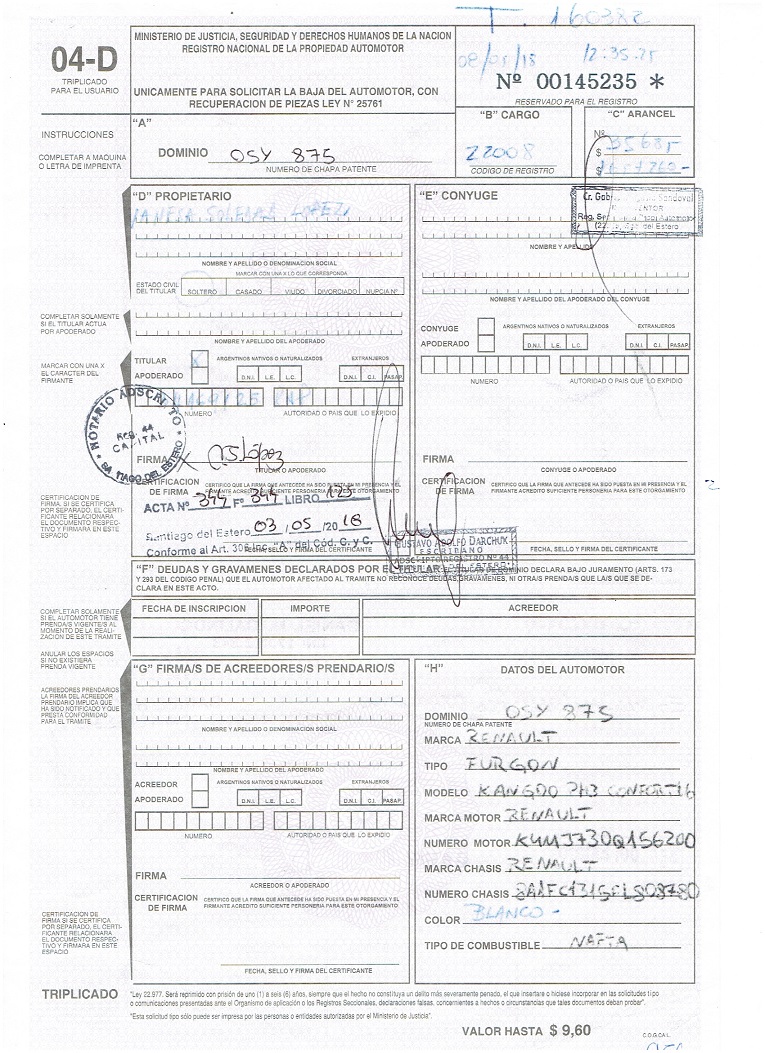 T. 160382
04-D
TRIPLICADO
PARA EL USUARIO
MINISTERIO DE JUSTICIA, SEGURIDAD Y DERECHOS HUMANOS DE LA NACION
REGISTRO NACIONAL DE LA PROPIEDAD AUTOMOTOR
UNICAMENTE PARA SOLICITAR LA BAJA DEL AUTOMOTOR, CON
RECUPERACION DE PIEZAS LEY N° 25761
08/05/18 12:35.25
Nº 00145235 *
RESERVADO PARA EL REGISTRO
INSTRUCCIONES
COMPLETAR A MAQUINA
O LETRA DE IMPRENTA
"A"
DOMINIO OSY 875
NUMERO DE CHAPA PATENTE
"B" CARGO
22008
CODIGO DE REGISTRO
"C" ARANCEL
Nº
$
$
"D" PROPIETARIO
LOPEZ
NOMBRE Y APELLIDO O DENOMINACION SOCIAL
MARCAR CON UNA X LO QUE CORRESPONDA
ESTADO CIVIL
DEL TITULAR
SOLTERO CASADO VIUDO DIVORCIADO NUPCIA Nº
COMPLETAR SOLAMENTE
SI EL TITULAR ACTUA
POR APODERADO
NOMBRE Y APELLIDO DEL APODERADO
MARCAR CON UNA X
EL CARACTER DEL
FIRMANTE
TITULAR X
APODERADO
ARGENTINOS NATIVOS O NATURALIZADOS EXTRANJEROS
D.N.I. L.E. L.C. D.N.I. C.I. PASAP.
NUMERO AUTORIDAD O PAIS QUE LO EXPIDIO
NOTARIO ADSCRITO
REG. 44
CAPITAL
FIRMA
López
TITULAR O APODERADO
CERTIFICACION
DE FIRMA
CERTIFICO QUE LA FIRMA QUE ANTECEDE HA SIDO PUESTA EN MI PRESENCIA Y EL
FIRMANTE ACREDITO SUFICIENTE PERSONERIA PARA ESTE OTORGAMIENTO
CERTIFICACION DE
FIRMA, SI SE CERTIFICA
POR SEPARADO, EL CERTI-
FICANTE RELACIONARA
EL DOCUMENTO RESPEC-
TIVO Y FIRMARA EN ESTE
ESPACIO
ACTA Nº 344 Fº 344 LIBRO 123
Santiago del Estero 03/05/2018
FECHA, SELLO Y FIRMA DEL CERTIFICANTE
"E" CONYUGE
NOMBRE Y APELLIDO
NOMBRE Y APELLIDO DEL APODERADO DEL CONYUGE
CONYUGE
APODERADO
ARGENTINOS NATIVOS O NATURALIZADOS EXTRANJEROS
D.N.I. L.E. L.C. D.N.I. C.I. PASAP.
NUMERO AUTORIDAD O PAIS QUE LO EXPIDIO
FIRMA
CONYUGE O APODERADO
CERTIFICACION
DE FIRMA
CERTIFICO QUE LA FIRMA QUE ANTECEDE HA SIDO PUESTA EN MI PRESENCIA Y EL
FIRMANTE ACREDITO SUFICIENTE PERSONERIA PARA ESTE OTORGAMIENTO
GUSTAVO ADOLFO DARCHUK
ESCRIBANO
FECHA, SELLO Y FIRMA DEL CERTIFICANTE
"F" DEUDAS Y GRAVAMENES DECLARADOS POR EL TITULAR DE DOMINIO DECLARA BAJO JURAMENTO (ARTS. 173
Y 293 DEL CODIGO PENAL) QUE EL AUTOMOTOR AFECTADO AL TRAMITE NO RECONOCE DEUDAS, GRAVAMENES, NI OTRA/S PRENDA/S QUE LA/S QUE SE DE-
CLARA EN ESTE ACTO.
COMPLETAR SOLAMENTE
SI EL AUTOMOTOR TIENE
PRENDA/S VIGENTE/S AL
MOMENTO DE LA REALI-
ZACION DE ESTE TRAMITE
ANULAR LOS ESPACIOS
SI NO EXISTIERA
PRENDA VIGENTE
FECHA DE INSCRIPCION IMPORTE ACREEDOR
ACREEDORES PRENDARIOS
LA FIRMA DEL ACREEDOR
PRENDARIO IMPLICA QUE
HA SIDO NOTIFICADO Y QUE
PRESTA CONFORMIDAD
PARA EL TRAMITE
"G" FIRMA/S DE ACREEDORES/S PRENDARIO/S
NOMBRE Y APELLIDO O DENOMINACION SOCIAL
NOMBRE Y APELLIDO DEL APODERADO
ACREEDOR
APODERADO
ARGENTINOS NATIVOS O NATURALIZADOS EXTRANJEROS
D.N.I. L.E. L.C. D.N.I. C.I. PASAP.
NUMERO AUTORIDAD O PAIS QUE LO EXPIDIO
FIRMA
ACREEDOR O APODERADO
CERTIFICACION
DE FIRMA
CERTIFICO QUE LA FIRMA QUE ANTECEDE HA SIDO PUESTA EN MI PRESENCIA Y EL
FIRMANTE ACREDITO SUFICIENTE PERSONERIA PARA ESTE OTORGAMIENTO
CERTIFICACION DE
FIRMA SI SE CERTIFICA
POR SEPARADO, EL CERTI-
FICANTE RELACIONARA
EL DOCUMENTO RESPEC-
TIVO Y FIRMARA EN ESTE
ESPACIO
FECHA, SELLO Y FIRMA DEL CERTIFICANTE
"H" DATOS DEL AUTOMOTOR
DOMINIO OSY 875
NUMERO DE CHAPA PATENTE
MARCA RENAULT
TIPO FURGON
MODELO KANGOO PH3 CONFORT 1.6
MARCA MOTOR RENAULT
NUMERO MOTOR K4MJ730Q156200
MARCA CHASIS RENAULT
NUMERO CHASIS
COLOR BLANCO -
TIPO DE COMBUSTIBLE NAFTA
TRIPLICADO
"Ley 22.977. Será reprimido con prisión de uno (1) a seis (6) años, siempre que el hecho no constituya un delito más severamente penado, el que insertare o hiciese incorporar en las solicitudes tipo
o comunicaciones presentadas ante el Organismo de aplicación o los Registros Seccionales, declaraciones falsas, concernientes a hechos o circunstancias que tales documentos deban probar".
"Esta solicitud tipo sólo puede ser impresa por las personas o entidades autorizadas por el Ministerio de Justicia".
VALOR HASTA $ 9,60